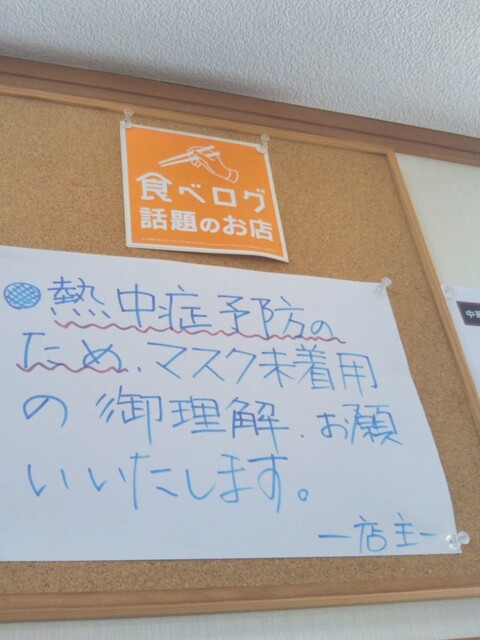 食べログ
話題のお店
●熱中症予防の
ため、マスク未着用
の御理解、お願
いいたします。
ー店主ー
中華